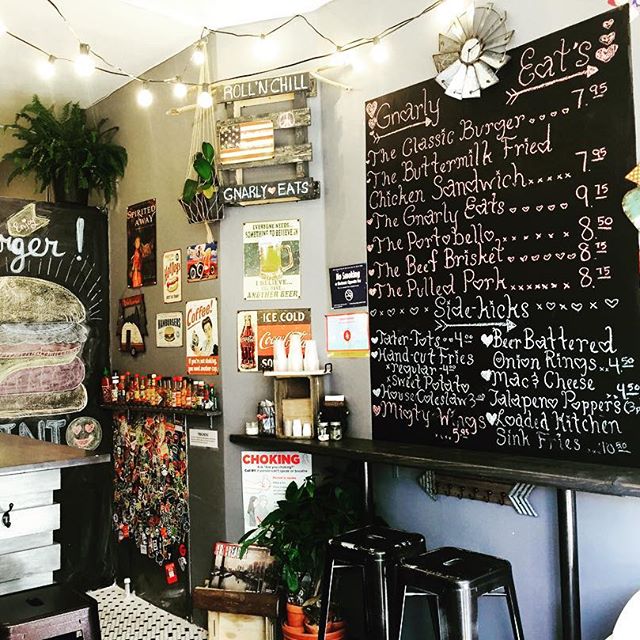 ROLL'N CHILL
GNARLY EATS
SPIRITED
AWAY
EVERYONE NEEDS
SOMETHING TO BELIEVE
IN
I BELIEVE...
ANOTHER BEER
No Smoking
HAMBURGERS
Coffee!
If you're not shaking,
you need another cup
ICE COLD
Coca-Cola
CHOKING
rger!
Gnarly Eat's
The Classic Burger.... 7.95
The Buttermilk Fried
Chicken Sandwich..... 7.95
The Gnarly Eats 9.75
The Portobello..... 8.50
The Beef Brisket 8.75
The Pulled Pork. 8.75
Side-kicks
Tater Tots..4.00
Hand cut Fries
regular 4.00
Sweet Potato
House Coleslaw
Mighty Wings
5.95
Beer Battered
Onion Rings ..4.50
Mac & Cheese
4.50
Jalapeno Poppers
Loaded Kitchen
Sink Fries ...10.80